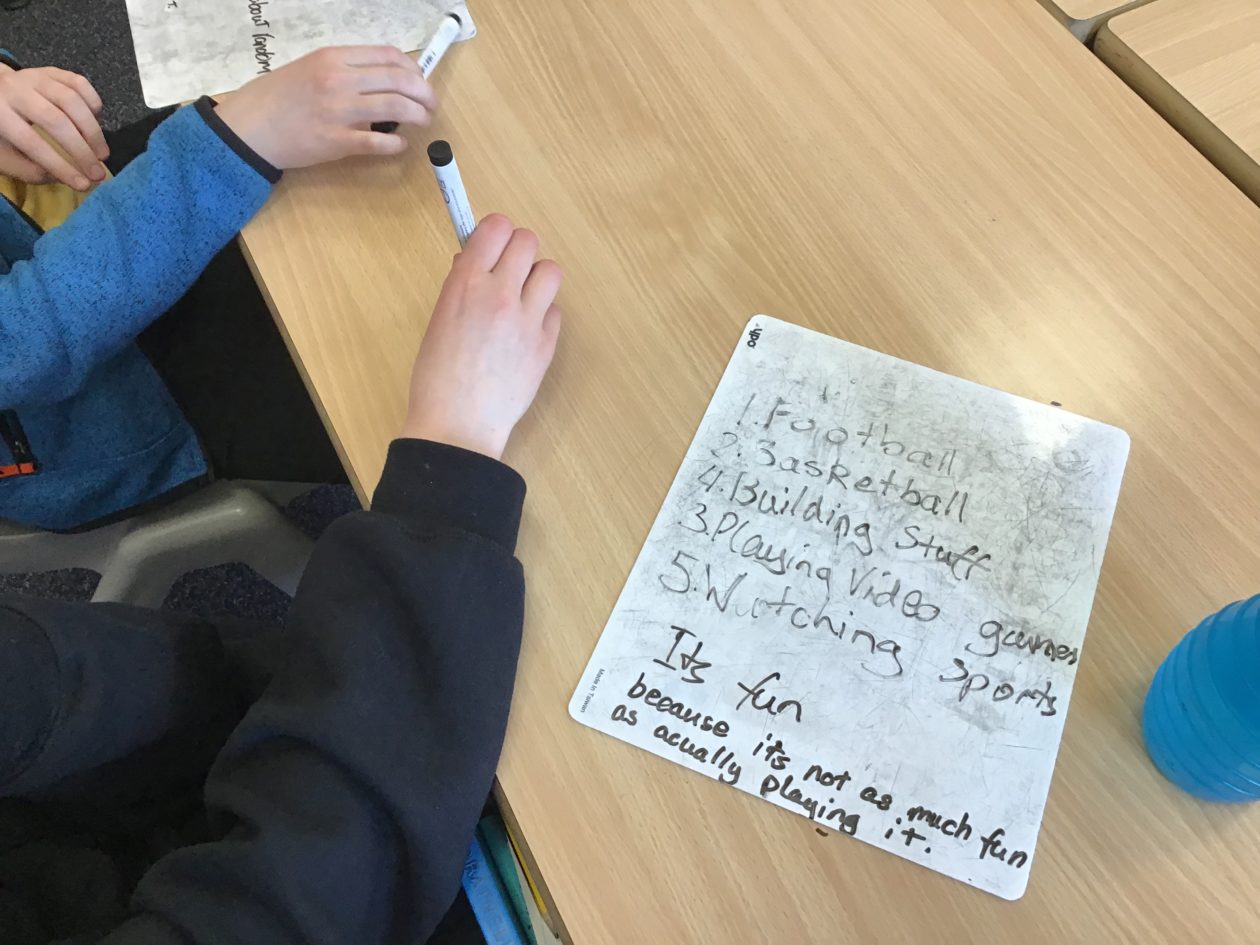 about random
1. Football
2. Basketball
4. Building Stuff
3. Playing Video games
5. Watching sports
Its fun
beeause it's not as much fun
as acually playing it.
Made in Taiwan